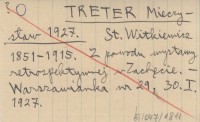 TRETER Mieczy-
sław 1927. St. Witkiewicz
1851-1915. Z powodu wystawy
retrospektywnej w Zachęcie. -
Warszawianka nr 29, 30.I.
1927.